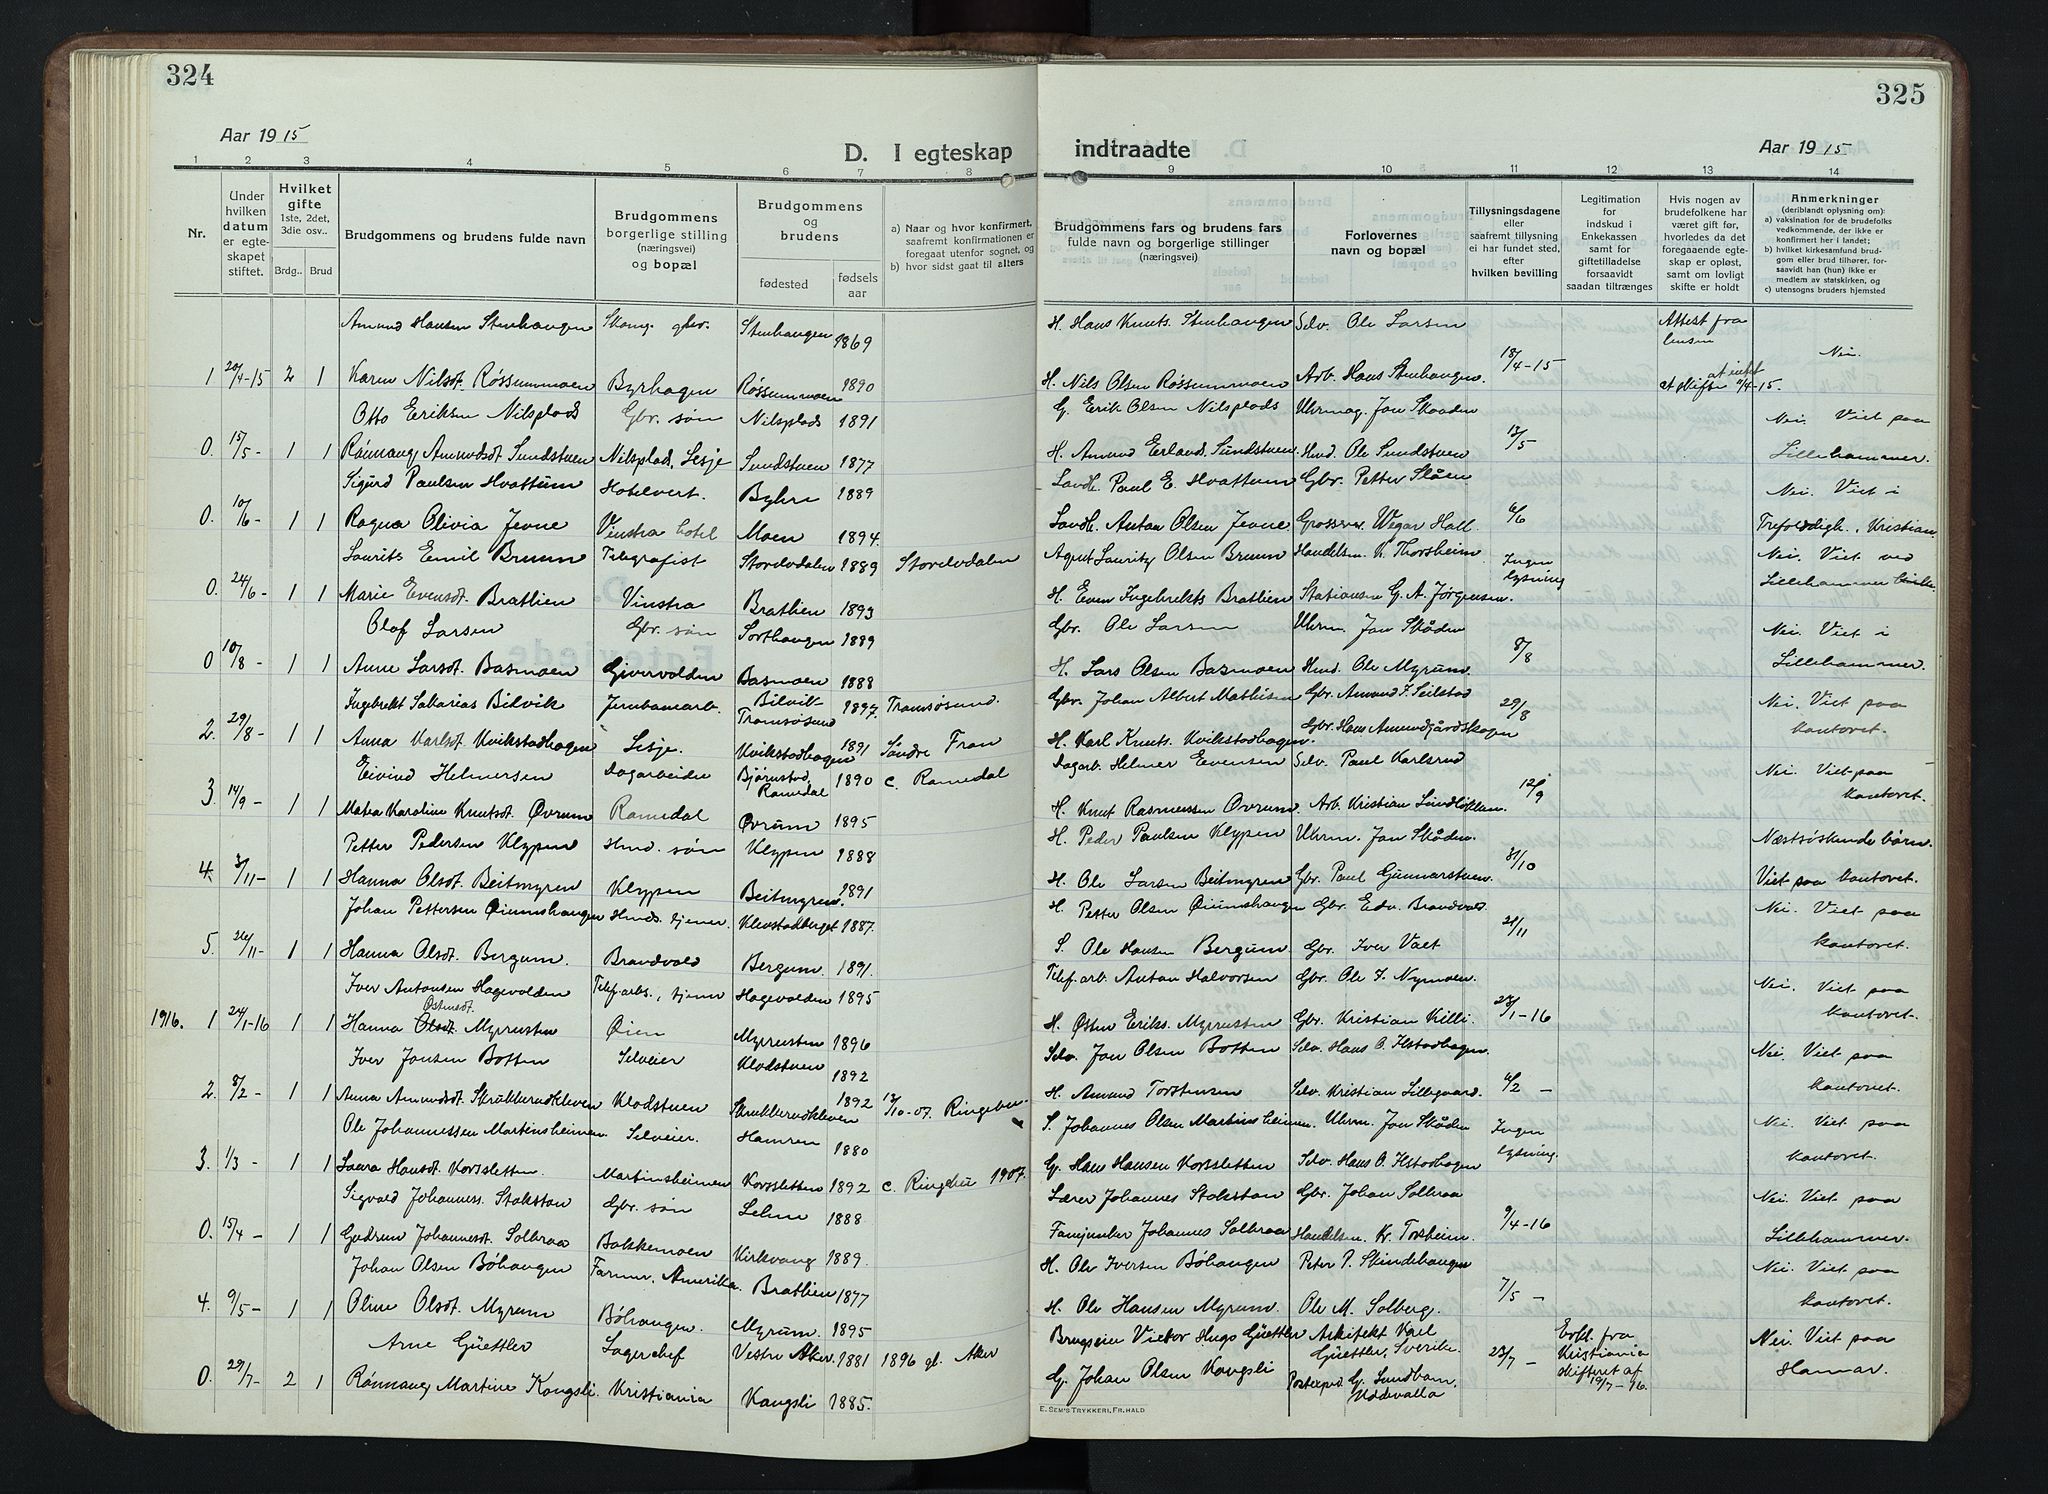 324
Aar 1915
D. I egteskap
1 2 3 4 5 6 7 8
Nr.
Under hvilken datum er egteskapet stiftet.
Hvilket gifte 1ste, 2det, 3die osv..
Brdg.. Brud
Brudgommens og brudens fulde navn
Brudgommens borgerlige stilling (næringsvei) og bopæl
Brudgommens og brudens
fødested
fødsels aar
a) Naar og hvor konfirmert, saafremt konfirmationen er foregaat utenfor sognet, og
b) hvor sidst gaat til alters
Amund Hansen Stenhaugen Skomg. gbr. Stenhaugen 1869
1 20/4-15 2 1 Karen Nilsdt. Røssummoen Byrhagen Røssummoen 1890
Otto Eriksen Nilsplads Gbr. søn Nilsplads 1891
0. 15/5 - 1 1 Rønnaug Amundsdt Sundstuen Nilsplads, Lesje Sundstuen 1877
Sigurd Paulsen Hvattum Hotelvert. Byhre 1889
0. 10/6 - 1 1 Ragna Olivia Jevne Vinstra hotel Moen 1894.
Laurits Emil Bruun Telegrafist Stordalen 1889 Stordalen
0. 24/6 - 1 1 Marie Evensdt. Bratlien Vinstra Bratlien 1893
Olaf Larsen Gbr. søn Sorthaugen 1889
0 10/8 - 1 1 Anne Larsdt. Basmoen Gjervolden Basmoen 1888
Ingebrekt Sakarias Bilvik Jernbanearb. Bilvik Tromsøsund 1897. Tromsøsund.
2. 29/8 - 1 1 Anna Karlsdt. Kvikstadhagen Lesje. Kvikstadhagen 1891 Søndre Fron
Eivind Helmersen Dagarbeider Bjørnstad, Romedal 1890 c. Romedal
3. 14/9 - 1 1 Matea Karoline Knutsdt. Øvrum Romedal Øvrum 1895
Petter Pedersen Klypen Hmd. søn Klypen 1888
4. 3/11 - 1 1 Hanna Olsdt. Beitmyren Klypen Beitmyren. 1891
Johan Pettersen Øiumshaugen Hmds. tjener Klevstadberget 1887.
5. 26/11 - 1 1 Hanna Olsdt. Bergum. Brandvold Bergum. 1891.
Iver Antonsen Hagevolden Telef. arb., tjener Hagevolden 1895
1916. 1 24/1-16 1 1 Hanna Olsdt. Østensdt. Myrrusten Øien Myrrusten 1896
Iver Jonsen Botten Selveier Klodstuen 1892
2. 8/2 - 1 1 Anna Amundsdt. Skrukkerudkleven Klodstuen Skrukkerudkleven 1892 13/10-07. Ringebu.
Ole Johannessen Martinsheimen Selveier. Hamren 1880
3. 1/3 - 1 1 Laura Hansdt. Korssletten. Martinsheimen Korssletten 1892 c. Ringebu 1907.
Sigvald Johanness. Stokstad Gbr. søn Lehne 1888
0. 15/4 - 1 1 Gudrun Johannesdt. Solbraa Bakkemoen Kirkvang 1889.
Johan Olsen Bøhaugen Farmer, Amerika. Bratlien 1877
4. 9/5 - 1 1 Oline Olsdt. Myrum Bøhaugen. Myrum. 1895
Arne Güettler Lagerchef Vestre Aker. 1881 1896 gl. Aker
0. 29/7 - 2 1 Rønnaug Martine Kongsli. Kristiania Kongsli 1885.
325
indtraadte
Aar 1915
9 10 11 12 13 14
Brudgommens fars og brudens fars fulde navn og borgerlige stillinger (næringsvei)
Forlovernes navn og bopæl
Tillysningsdagene eller saafremt tillysning ei har fundet sted, efter hvilken bevilling
Legitimation for indskud i Enkekassen samt for giftetilladelse forsaavidt saadan tiltrænges
Hvis nogen av brudefolkene har været gift før, hvorledes da det foregaaende egteskap er opløst, samt om lovligt skifte er holdt
Anmerkninger (deriblandt oplysning om):
a) vaksination for de brudefolks vedkommende, der ikke er konfirmert her i landet;
b) hvilket kirkesamfund brudgom eller brud tilhører, forsaavidt han (hun) ikke er medlem av statskirken, og
c) utensogns bruders hjemsted
H. Hans Knuts. Stenhaugen Selv. Ole Larsen Attest fra
H. Nils Olsen Røssummoen Arb. Hans Stenhaugen. 18/4-15 Nei.
G. Erik Olsen Nilsplads Uhrmag. Jon Skaaden Nei. Viet paa
H. Amund Erlands. Sundstuen. Hmd. Ole Sundstuen 13/5 Lillehammer.
Landh. Paul E. Hvattum Gbr. Petter Slåen Nei. Viet i
Landh. Anton Olsen Jevne Grosserer Wegar Hall. 6/6 Trefoldigh., Kristian.
Agent Lauritz Olsen Bruun Handelsm. K. Thorsheim Ingen lysning Nei. Viet ved
H. Even Ingebrekts Bratlien Stationsm G. A. Jørgensen. Lillehammer kirke
Gbr. Ole Larsen Uhrm. Jon Skåden Nei. Viet i
H. Lars Olsen Basmoen Hmd. Ole Myrum. 8/8 Lillehammer.
Gbr. Johan Albert Mathisen Gbr. Amund J. Seilstad 29/8 Nei. Viet paa
H. Karl Knuts. Kvikstadhagen. Gbr. Hans Amundgårdskogen kontoret.
Dagarb. Helmer Evensen Selv. Paul Karlsrud Nei. Viet paa
H. Knut Rasmussen Øvrum. Arb. Kristian Lindløkken. 12/9 kontoret.
H. Peder Paulsen Klypen Uhrm. Jon Skåden. Næstsøskende børn.
H. Ole Larsen Beitmyren Gbr. Paul Gunnarstuen. 31/10 Viet paa kontoret.
H. Petter Olsen Øiumshaugen Gbr. Edv. Brandvold. Nei. Viet paa
S. Ole Hansen Bergum. Gbr. Iver Valt 21/11 kontoret.
Telef. arb. Anton Halvorsen Gbr. Ole J. Nymoen. Nei. Viet paa
H. Østen Eriks. Myrrusten Gbr. Kristian Killi. 23/1-16 kontoret.
Selv. Jon Olsen Botten Selv. Hans O. Ilstadhagen. Nei. Viet paa
H. Amund Torstensen Selv. Kristian Lillegaard. 6/2 - kontoret.
S. Johannes Olsen Martinsheimen. Uhrm. Jon Skåden Ingen lysning. Nei. Viet paa
G. Hans Hansen Korssletten Selv. Hans O. Ilstadhagen kontoret.
Lærer Johannes Stokstad Gbr. Johan Solbraa Nei. Viet paa
Fanejunker Johannes Solbraa Handelsm. Kr. Torsheim. 9/4-16 Lillehammer.
H. Ole Iversen Bøhaugen Peter P. Skindehaugen Nei. Viet paa
H. Ole Hansen Myrum. Ole M. Solberg. 7/5 - kontoret.
Brugseier Victor Hugo Güettler Arkitekt Karl Güettler, Sverike. 23/7 - Erkl. fra Kristiania skifteret af 19/7-16. Nei. Viet paa
G. Johan Olsen Kongsli Postexped. G. Sundbom, Uddevalla Hamar.
E. SEM'S TRYKKERI, FR.HALD